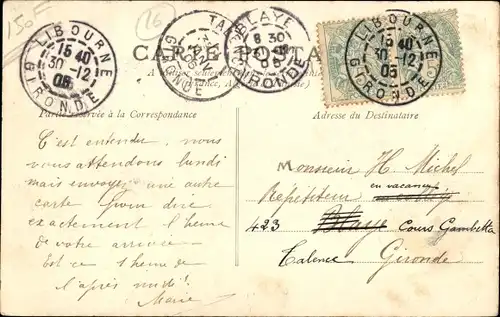 150F
16
LIBOURNE
15 40
30 -12
05
GIRONDE
TA
GIRONDE
BLAYE
8 30
GIRONDE
LIBOURNE
15 40
30 -12
05
GIRONDE
CARTE POSTALE
Partie réservée à la Correspondance
Adresse du Destinataire
C'est entendu, nous
vous attendons lundi
mais envoyez une autre
carte pour dire
exactement l'heure
de votre arrivée
Est ce 1 heure de
l'après midi?
Marie
Monsieur H. Michel
Répétiteur en vacances
423 Blaye Cours Gambetta
Talence Gironde